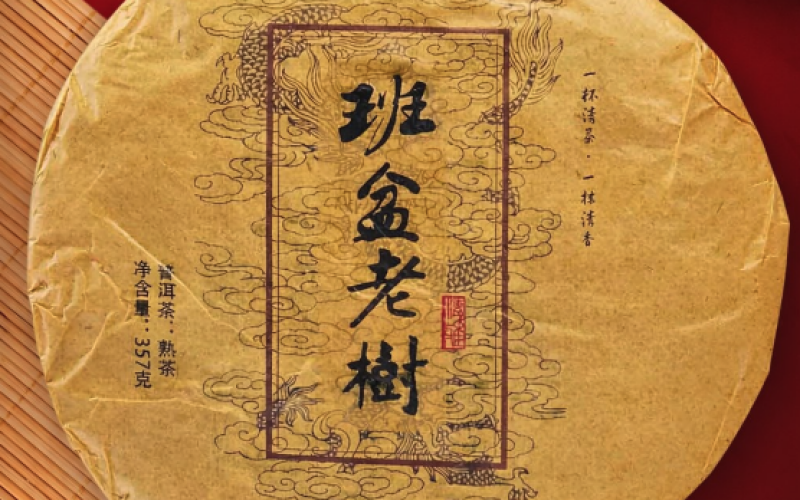 一杯清茶·一抹清香
班盆老樹
普洱茶：熟茶
净含量：357克